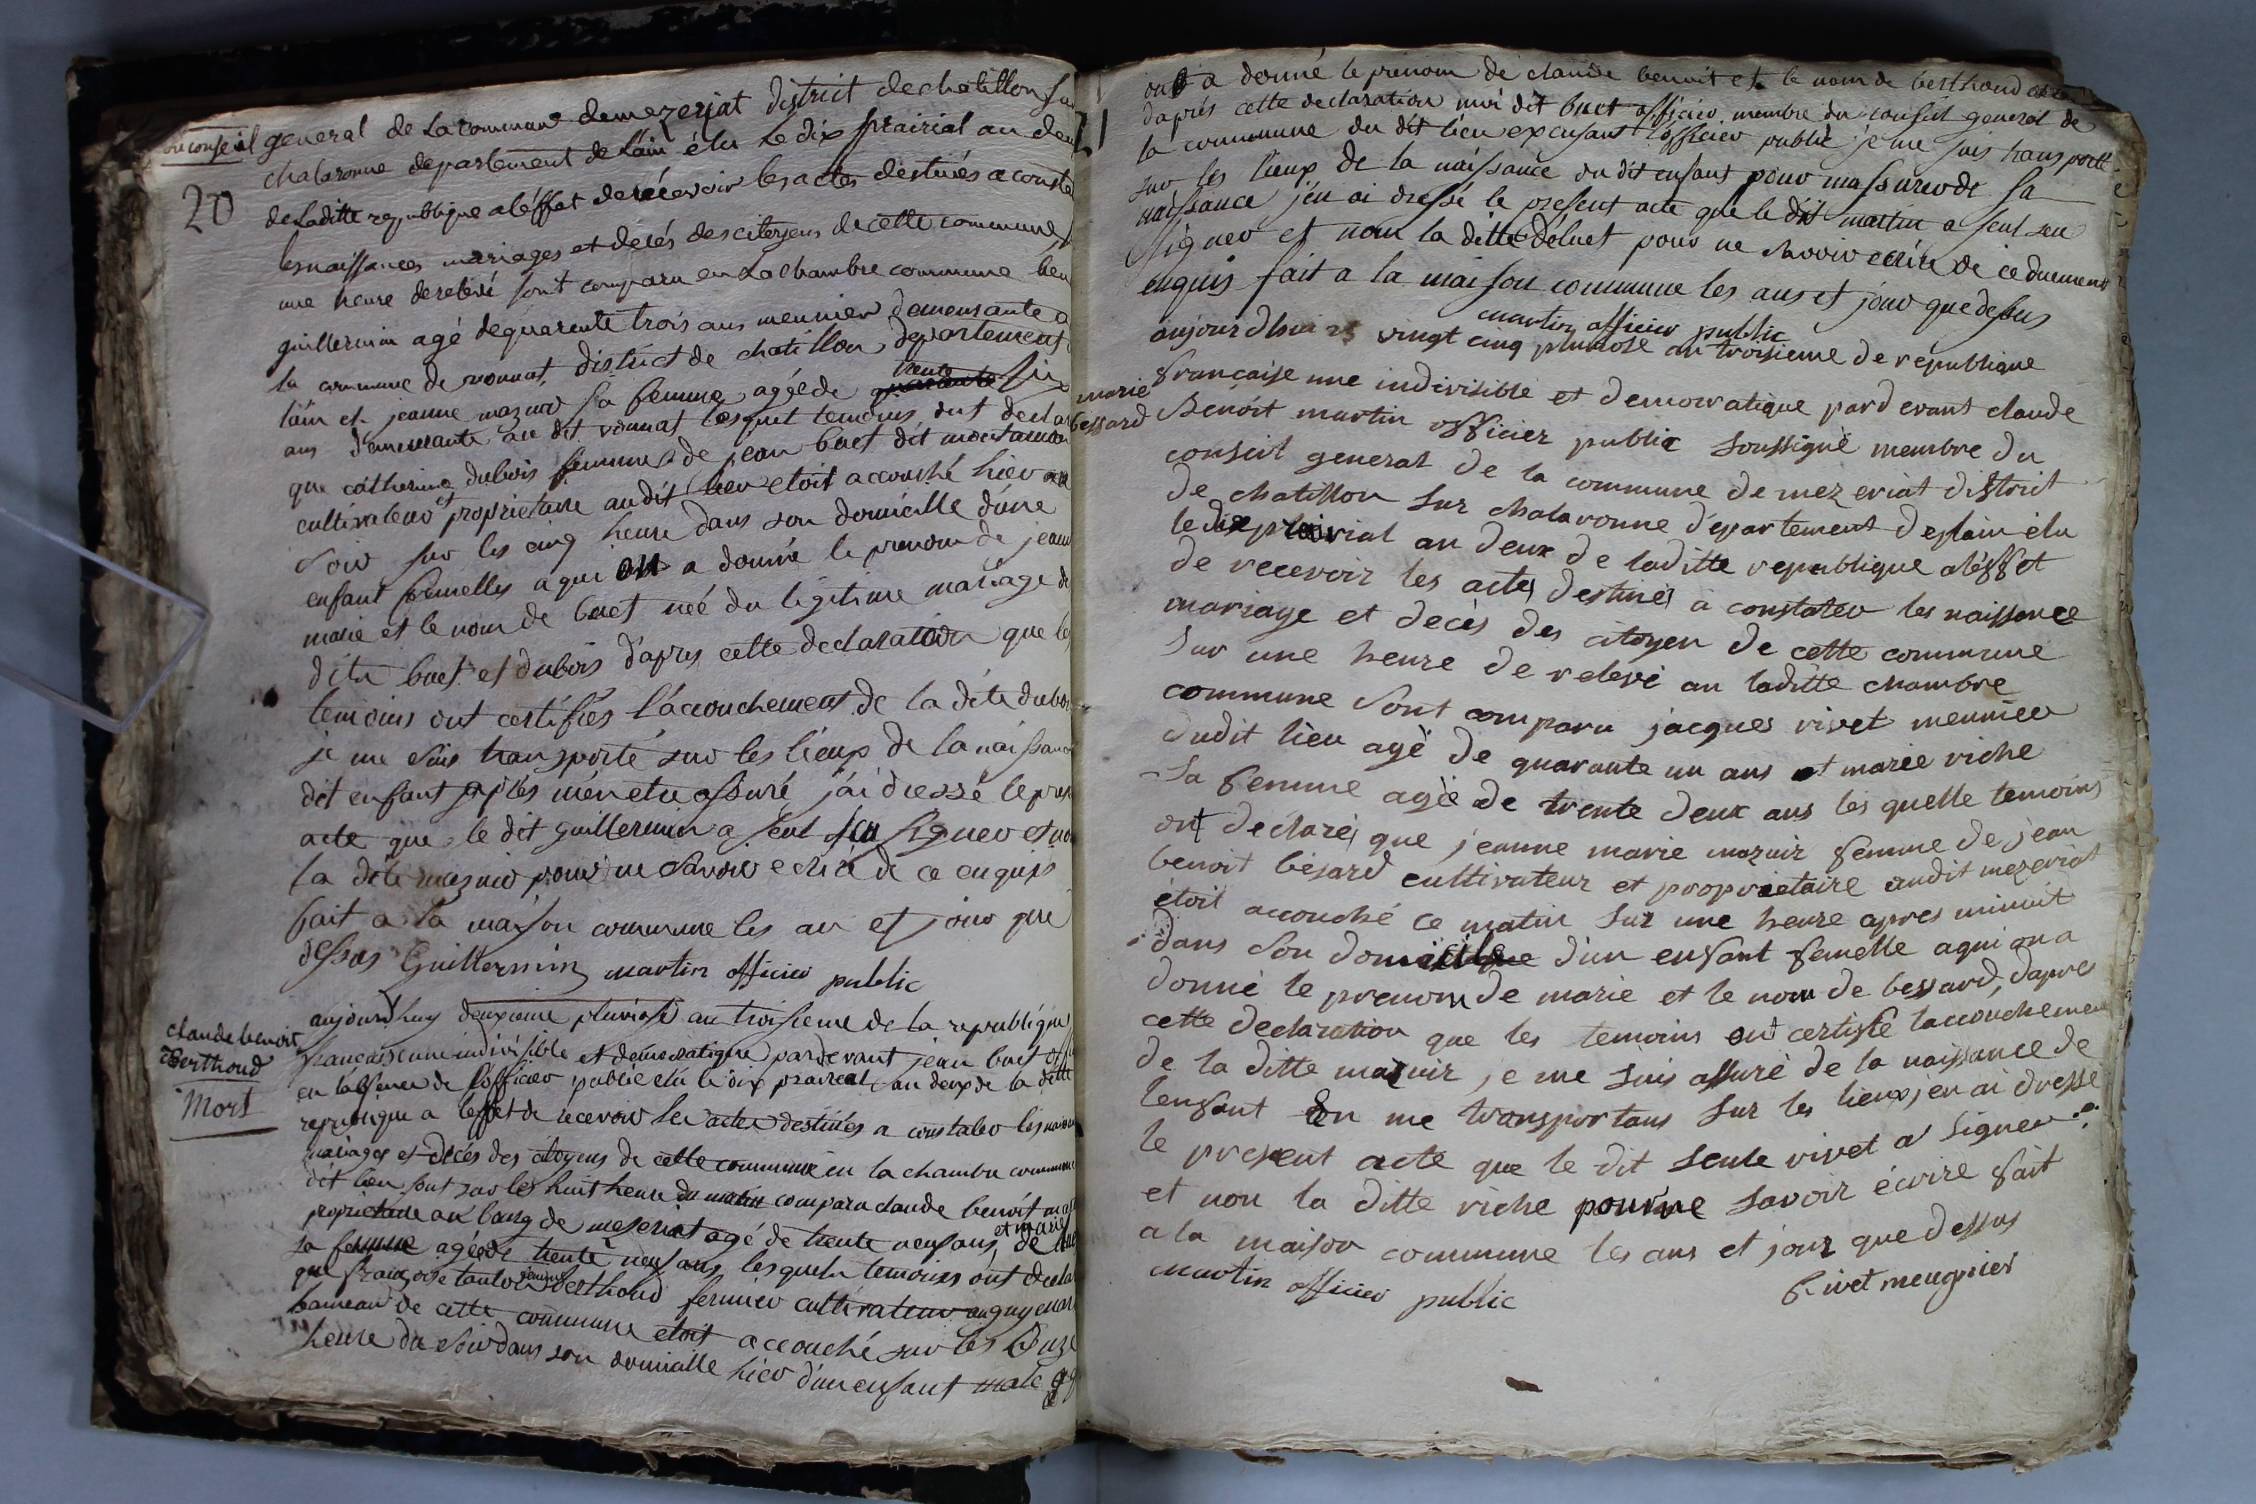 du conseil general de la commune demezeriat district dechatillon sur
20
chalaronne departement de lain élu le dix prairial an deux
de laditte republique a léffet derecevoir les actes destinés a constater
les naissances mariages et decés des citoyens de cette commune,
une heure derelevé sont comparu en la chambre commune
guillermin agé dequarente trois ans meunier demeurante a
la commune de vonnat, district de chatillon, departement
lain et jeanne maznio sa femme, agéede quarante trente six
ans demeurante au dit vonnat lesquel temoins ont declaré
que catherine dubois femme de jean buet dit montamon
cultivateur et proprietaire audit lieu etoit accouché hier au
soir sur les cinq heure dans son domicille dune
enfant femelles a qui on a donné le prenom de jeanne
marie et le nom de buet née du légitime mariage de
dits buet et dubois d'apres cette declaration que les
temoins ont certifiés l'accouchement de la dite dubois
je me suis transporté sur les lieux de la naissance
dit enfant j'ai dressé le present
acte que le dit guillermin a seul scu signer et non
la dite maznio pour ne savoir ecrire de ce enquis
fait a la maison commune les an et jour que
dessus Guillermin martin officier public
claude benoit
Berthoud
Mort
aujourdhuy deuxieme pluviose an troisieme de la republique
francaise une indivisible et democratique pardevant jean buet
en labsence de l'officier public elu le dix prairial an deux de la ditte
republique a leffet de recevoir les actes destinés a constater les
mariages et décés des citoyens de cette commune en la chambre commune
dit lieu sont sur les huit heure du matin comparu claude benoit
proprietaire au bourg de mezeriat agé de trente neuf ans, et marie
sa femme agéede trente neuf ans, lesquels temoins ont declaré
que francoise femme berthoud fermier cultivateur
hameau de cette commune etoit accouché sur les onze
heure du soir dans son domicille hier d'un enfant male
on a donné le prenom de claude benoit et le nom de berthoud
daprés cette declaration moi dit buet officier membre du conseil general de
la commune du dit lieu excusant l'officier public je me suis transporté
sur les lieux de la naissance du dit enfant pour massurer de sa
naissance j'en ai dressé le present acte que le dit martin a seul seu
signer et non la ditte Déluet pour ne savoir ecrire de ce duement
enquis fait a la maison commune les ans et jour que dessus
martin officier public
marie
bessard
aujourdhui vingt cinq pluviose an troisieme de republique
francaise une indivisible et democratique pardevant claude
Benoit martin officier public soussigné membre du
conseil general de la commune de mezeriat district
de chatillon sur chalaronne departement deplain élu
le dix prairial an deux de laditte republique aléffet
de recevoir les actes destinés a constater les naissance
mariage et decès des citoyen de cette commune
sur une heure de relevé an laditte chambre
commune sont comparu jacques rivet meunier
dudit lieu agé de quarante un ans et marie riche
sa femme agéede trente deux ans les quelle temoins
ont declarés que jeanne marie mazuir femme de jean
benoit bésard cultivateur et proprietaire audit mezeriat
étoit accouché ce matin sur une heure apres minuit
dans son domicile d'un enfant femelle aqui on a
donné le prenom de marie et le nom de bessard, dapres
cette declaration que les temoins ont certifié laccouchement
de la ditte mazuir, je me suis assuré de la naissance de
lenfant en me transportans sur les lieux, jen ai dressé
le present acte que le dit seule rivet a signer
et non la ditte riche pour ne savoir écrire fait
a la maison commune les ans et jour que dessus
martin officier public rivet meugnier